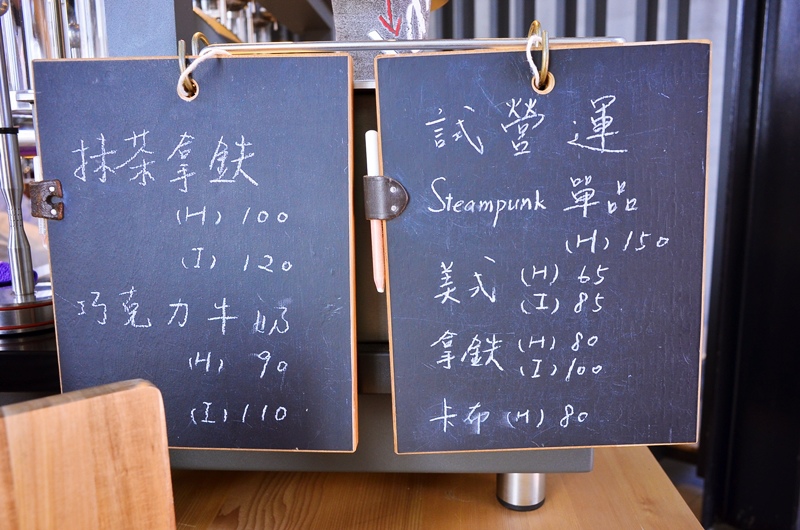 抹茶拿鉄
(H) 100
(I) 120
巧克力牛奶
(H) 90
(I) 110
試營運
Steampunk 單品
(H) 150
美式 (H) 65
(I) 85
拿鉄 (H) 80
(I) 100
卡布 (H) 80